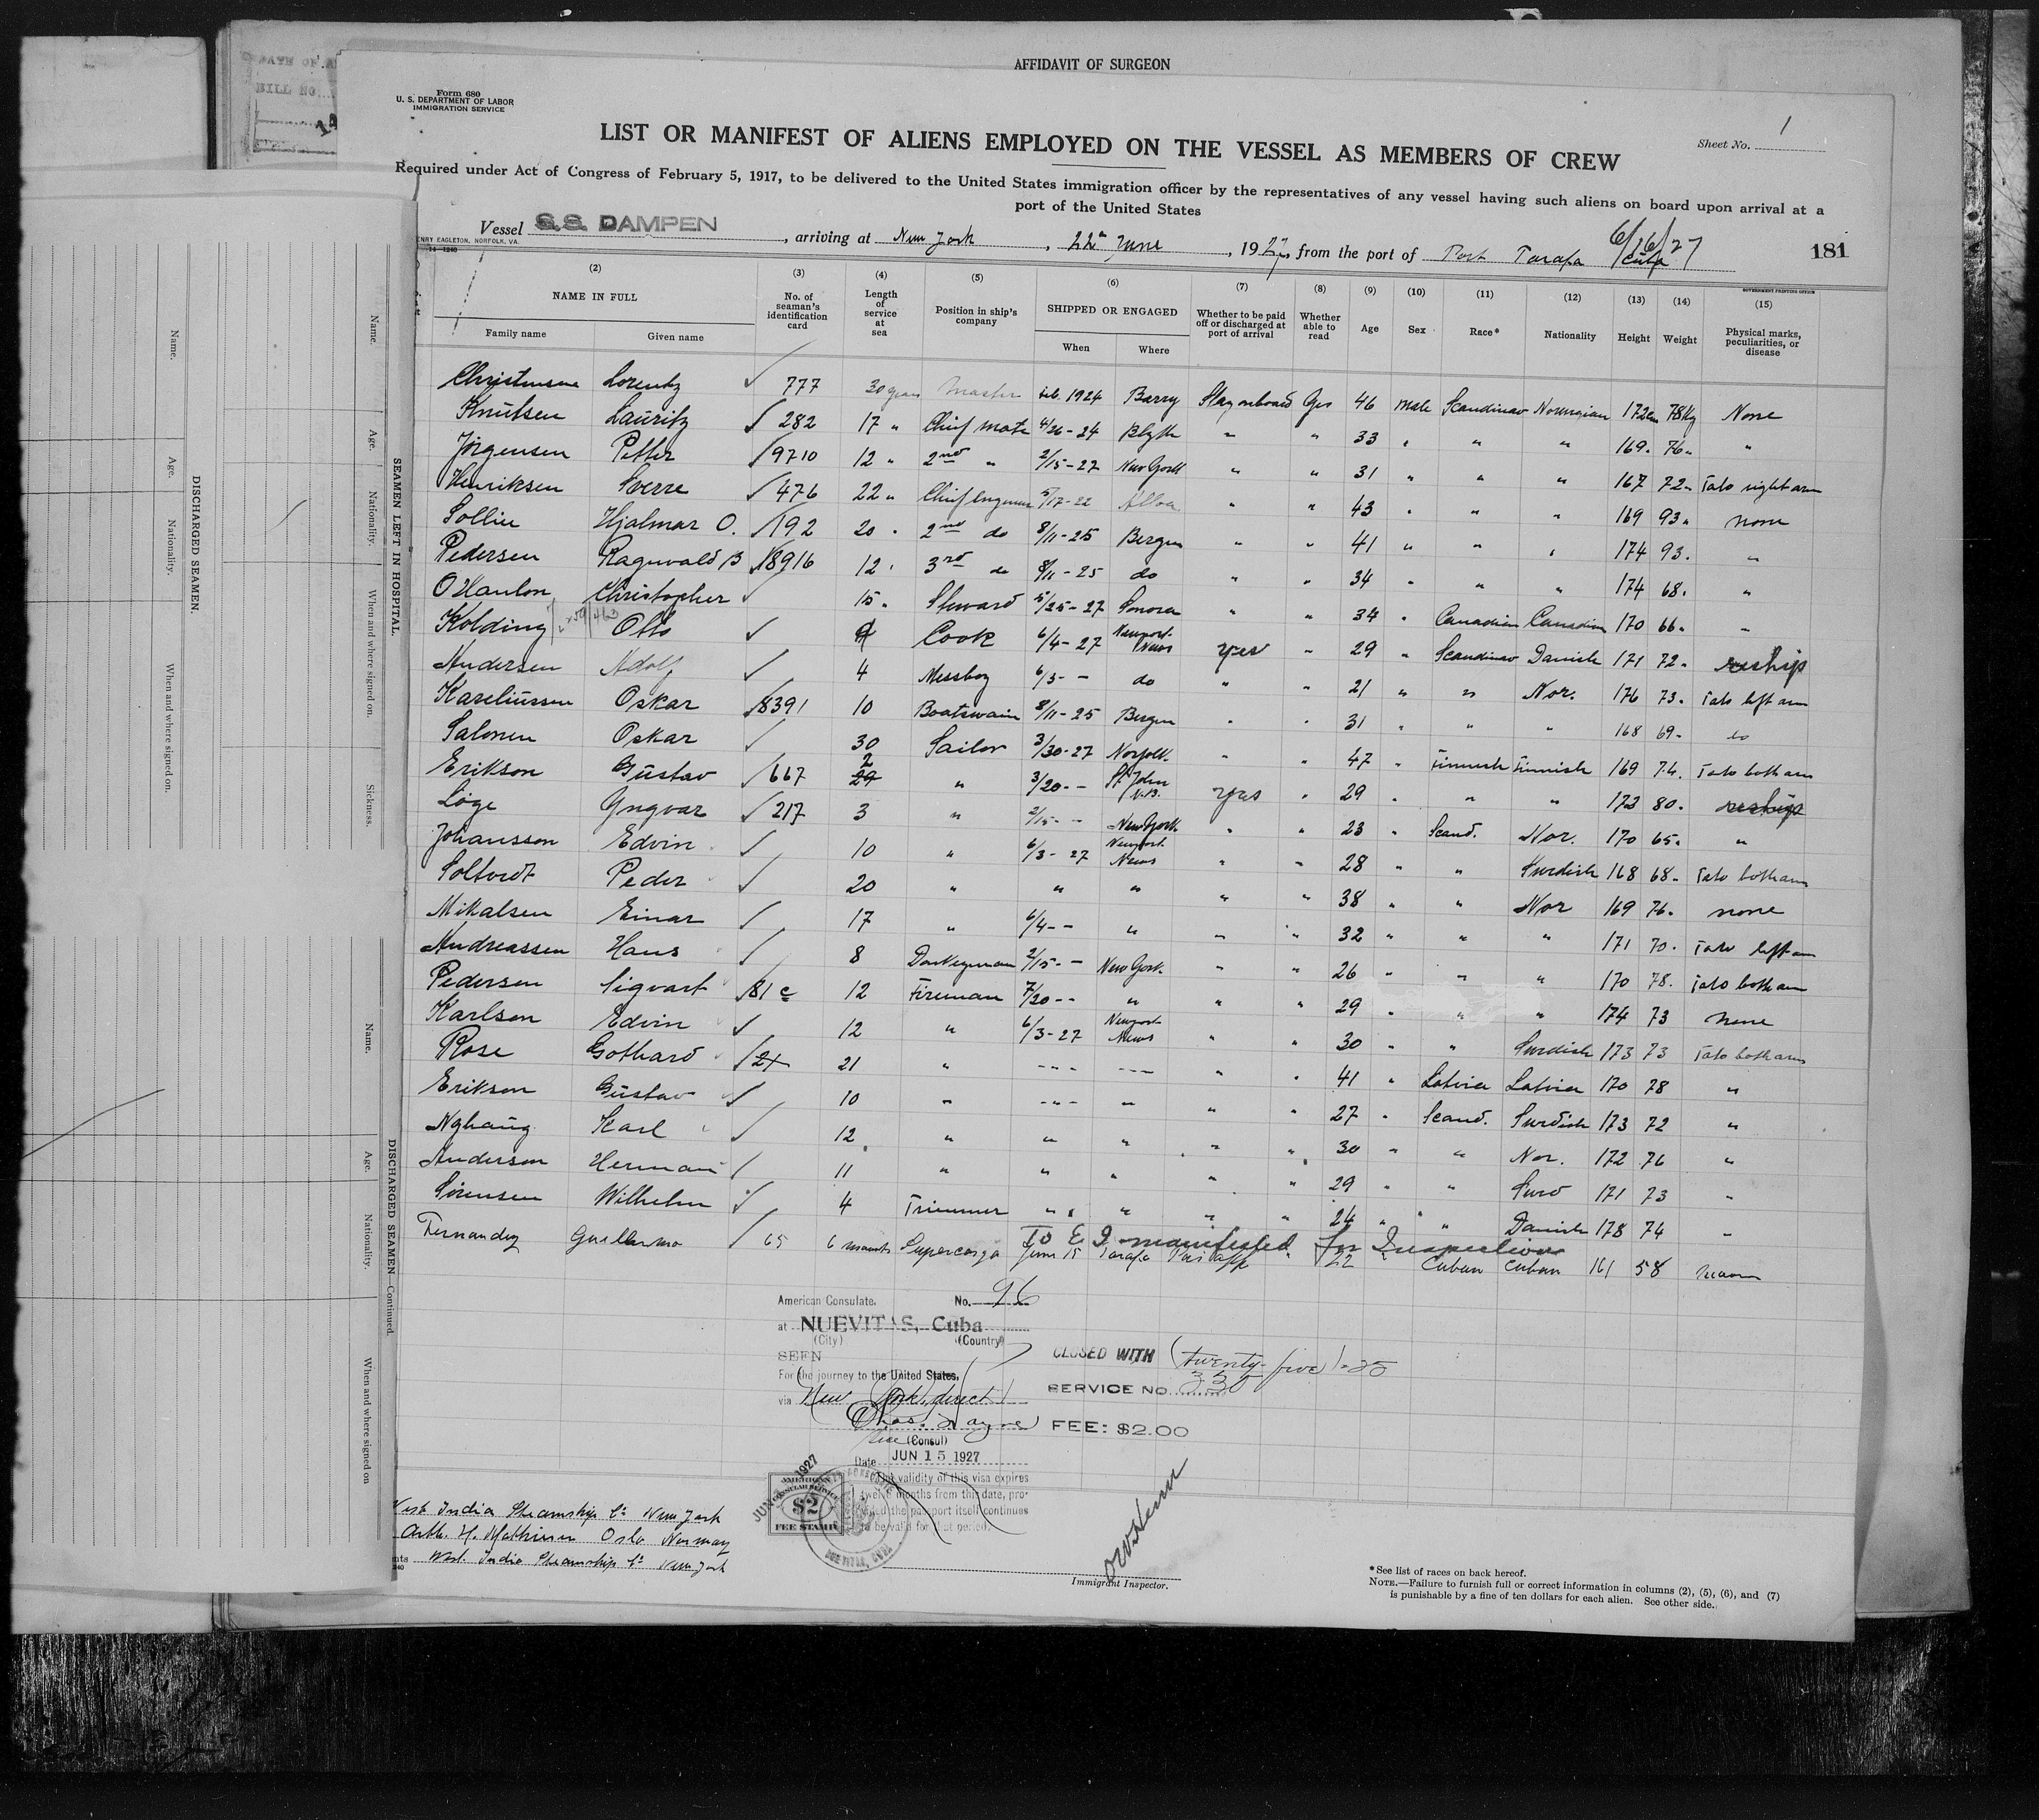 AFFIDAVIT OF SURGEON
Form 680
U. S. DEPARTMENT OF LABOR
IMMIGRATION SERVICE
Sheet No. 1
LIST OR MANIFEST OF ALIENS EMPLOYED ON THE VESSEL AS MEMBERS OF CREW
Required under Act of Congress of February 5, 1917, to be delivered to the United States immigration officer by the representatives of any vessel having such aliens on board upon arrival at a
port of the United States
Vessel S.S. DAMPEN, arriving at New York, 22n June, 1927, from the port of Port Tarafa Cuba 6/16/27
181
HENRY EAGLETON, NORFOLK, VA.
14—1240
GOVERNMENT PRINTING OFFICE
(2) (3) (4) (5) (6) (7) (8) (9) (10) (11) (12) (13) (14) (15)
NAME IN FULL
Family name Given name
No. of seaman's identification card
Length of service at sea
Position in ship's company
SHIPPED OR ENGAGED
When Where
Whether to be paid off or discharged at port of arrival
Whether able to read
Age Sex Race* Nationality Height Weight
Physical marks, peculiarities, or disease
Christensen Lorentz ✓ 777 30 years Master feb. 1924 Barry Stay onboard Yes 46 Male Scandinav Norwegian 172cm 78Kg None
Knutsen Lauritz ✓ 282 17 " Chief Mate 4/26-24 Blyth " " 33 " " " 169. 76. "
Jörgensen Petter ✓ 9710 12 " 2nd " 2/15-27 New York " " 31 " " " 167 72 " Tato right arm
Henriksen Sverre ✓ 476 22 " Chief Engineer 5/17-22 Alloa " " 43 " " " 169 93 " none
Sollin Hjalmar O. ✓ 192 20 " 2nd do 8/11-25 Bergen " " 41 " " " 174 93. "
Pedersen Ragnvald B ✓ 8916 12 " 3rd do 8/11-25 do " " 34 " " " 174 68. "
O'Hanlon Christopher ✓ 15 " Steward 5/25-27 Sonora " " 34 " Canadian Canadian 170 66 " "
Kolding Otto ✓ 9 Cook 6/4-27 Newport News yes " 29 " Scandinav Danish 171 72 " reship
Andersen Adolf ✓ 4 Messboy 6/3- - do " " 21 " " Nor. 176 73. Tato left arm
Kareliussen Oskar ✓ 8391 10 Boatswain 8/11-25 Bergen " " 31 " " " 168 69. do
Salonen Oskar ✓ 30 Sailor 3/30-27 Norfolk. " " 47 " Finnish Finnish 169 74. Tato both arm
Erikson Gustav ✓ 667 2 " 3/20- - St John N.B. yes " 29 " " " 173 80. reship
Löge Yngvar ✓ 217 3 " 2/15- - New York. " " 23 " Scand. Nor. 170 65. "
Johansson Edvin ✓ 10 " 6/3-27 Newport News " " 28 " " Swedish 168 68. Tato both arm
Soltvedt Peder ✓ 20 " " " " " 38 " " Nor 169 76. none
Mikalsen Einar ✓ 17 " 6/4- - " " " 32 " " " 171 70. Tato left arm
Andreassen Hans ✓ 8 Donkeyman 2/15- - New York. " " 26 " " " 170 78. Tato both arm
Pedersen Sigvart ✓ 81 c 12 Fireman 7/20- - " " " 29 " " " 174 73 none
Karlson Edvin ✓ 12 " 6/3-27 Newport News " " 30 " " Swedish 173 73 Tato both arm
Rose Gothard ✓ 21 21 " - - - - - - " " 41 " Latvia Latvia 170 78 "
Erikson Gustav ✓ 10 " - - - " " " 27 " Scand. Swedish 173 72 "
Nyhaug Karl ✓ 12 " " " " " 30 " " Nor. 172 76 "
Anderson Herman ✓ 11 " " " " " 29 " " Swed 171 73 "
Sörensen Wilhelm ✓ 4 Trimmer " " " " 24 " " Danish 178 74 "
To E I manifested for Inspection
Fernandez Guillermo ✓ 65 6 months Supercargo June 15 Tarafa " 22 " Cuban Cuban 161 58
American Consulate. No. 96
at NUEVITAS, Cuba
(City) (Country)
SEEN
For the journey to the United States,
via New York, direct
Vice (Consul)
Date JUN 15 1927
The validity of this visa expires
twelve months from this date, pro-
vided the passport itself continues
to be valid for that period.
CLOSED WITH (twenty-five)-25
SERVICE NO. 330
FEE: $2.00
AMERICAN CONSULAR SERVICE
$2
FEE STAMP
West India Steamship Co New York
Arth. H. Mathiesen Oslo Norway
West India Steamship Co New York
Immigrant Inspector.
*See list of races on back hereof.
NOTE.—Failure to furnish full or correct information in columns (2), (5), (6), and (7)
is punishable by a fine of ten dollars for each alien. See other side.
SEAMEN LEFT IN HOSPITAL.
Name. Age. Nationality. When and where signed on. Sickness.
DISCHARGED SEAMEN.
Name. Age. Nationality. When and where signed on.
DISCHARGED SEAMEN—Continued.
Name. Age. Nationality. When and where signed on